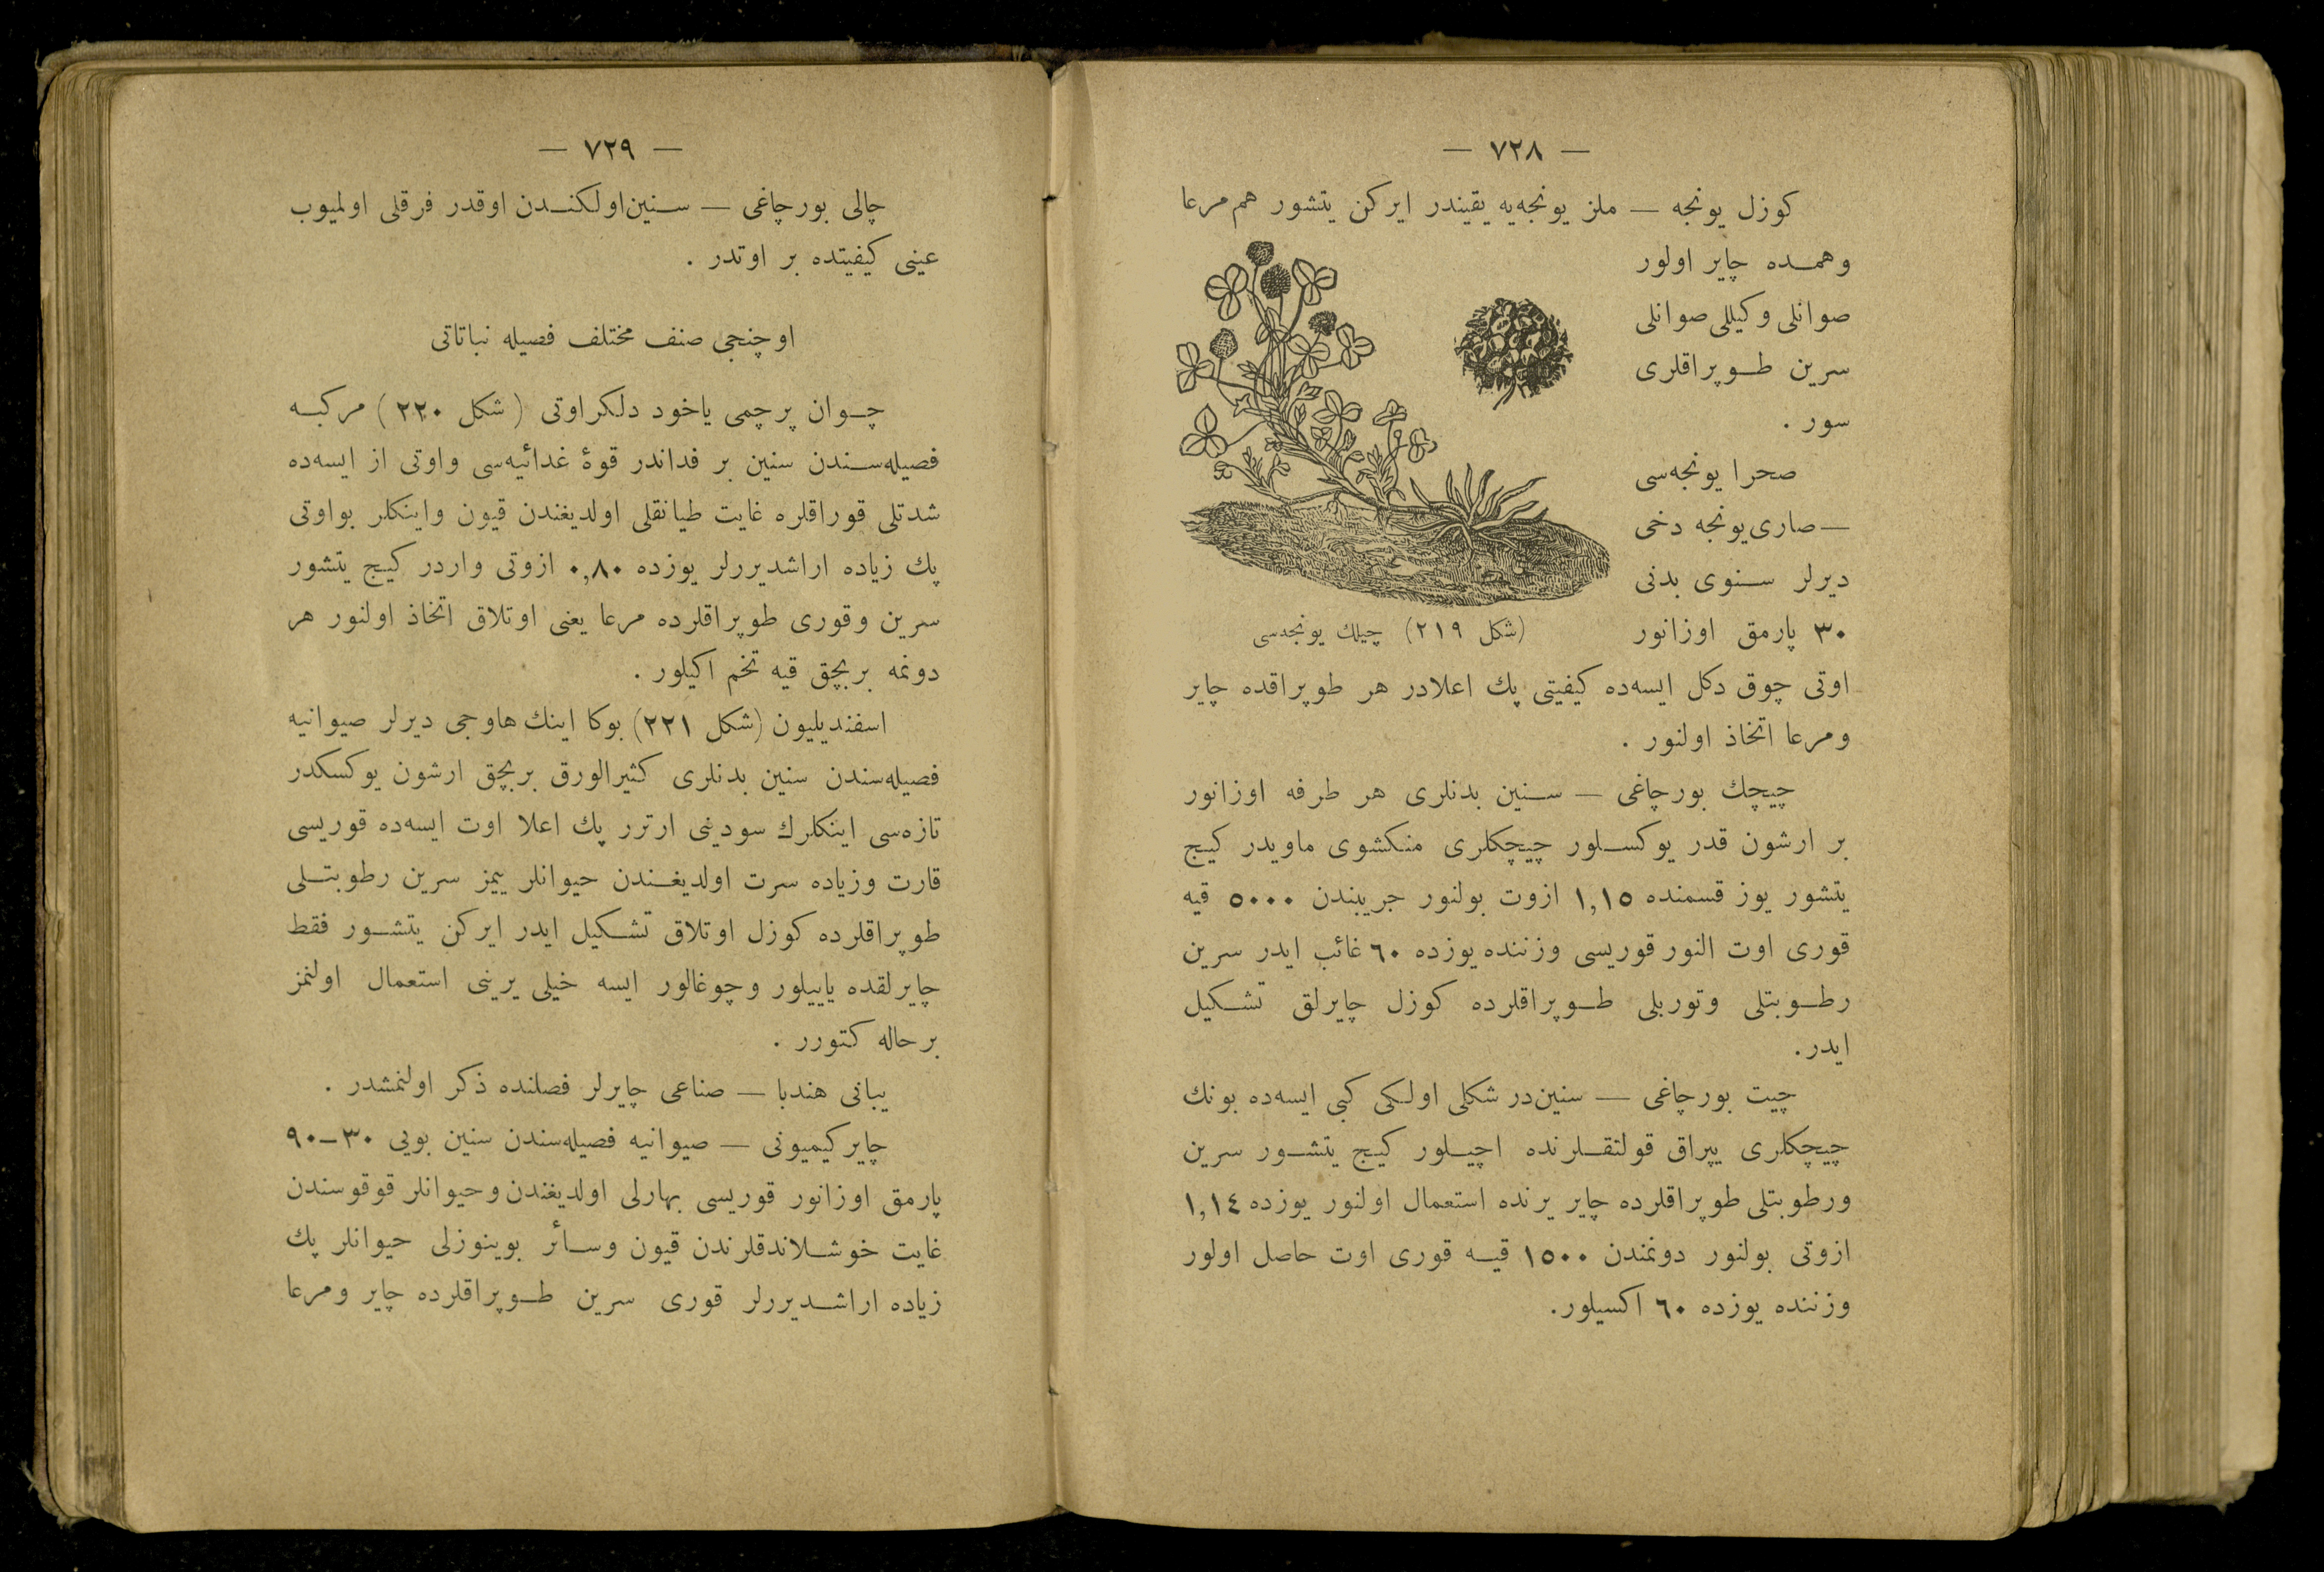 — ٧٢٨ —
كوزل يونجه — ملز يونجه‌يه يقيندر ايركن يتشور هم مرعا
وهمده چاير اولور
صوانلى وكيللى صوانلى
سرين طوپراقلرى
سور .
صحرا يونجه‌سى
— صارى يونجه دخى
ديرلر سنوى بدنى
٣٠ پارمق اوزانور
(شكل ٢١٩) چيلك يونجه‌سى
اوتى چوق دكل ايسه‌ده كيفيتى پك اعلادر هر طوپراقده چاير
ومرعا اتخاذ اولنور .
چيچك بورچاغى — سنين بدنلرى هر طرفه اوزانور
بر ارشون قدر يوكسلور چيچكلرى منكشوى ماويدر كيج
يتشور يوز قسمنده ١,١٥ ازوت بولنور جريبندن ٥٠٠٠ قيه
قورى اوت النور قوريسى وزننده يوزده ٦٠ غائب ايدر سرين
رطوبتلى وتوربلى طوپراقلرده كوزل چايرلق تشكيل
ايدر.
چيت بورچاغى — سنين‌در شكلى اولكى كبى ايسه‌ده بونك
چيچكلرى يپراق قولتقلرنده اچيلور كيج يتشور سرين
ورطوبتلى طوپراقلرده چاير يرنده استعمال اولنور يوزده ١,١٤
ازوتى بولنور دونمندن ١٥٠٠ قيه قورى اوت حاصل اولور
وزننده يوزده ٦٠ اكسيلور.
— ٧٢٩ —
چالى بورچاغى — سنين‌اولكندن اوقدر فرقلى اولميوب
عينى كيفيتده بر اوتدر .
اوچنجى صنف مختلف فصيله نباتاتى
چوان پرچمى ياخود دلكراوتى ( شكل ٢٢٠ ) مركبه
فصيله‌سندن سنين بر فداندر قوۀ غدائيه‌سى واوتى از ايسه‌ده
شدتلى قوراقلره غايت طيانقلى اولديغندن قيون واينكلر بواوتى
پك زياده اراشديررلر يوزده ٠,٨٠ ازوتى واردر كيج يتشور
سرين وقورى طوپراقلرده مرعا يعنى اوتلاق اتخاذ اولنور هر
دونمه بربچق قيه تخم اكيلور .
اسفنديليون (شكل ٢٢١) بوكا اينك هاوجى ديرلر صيوانيه
فصيله‌سندن سنين بدنلرى كثيرالورق بربچق ارشون يوكسكدر
تازه‌سى اينكلرك سودينى ارترر پك اعلا اوت ايسه‌ده قوريسى
قارت وزياده سرت اولديغندن حيوانلر ييمز سرين رطوبتلى
طوپراقلرده كوزل اوتلاق تشكيل ايدر ايركن يتشور فقط
چايرلقده ياييلور وچوغالور ايسه خيلى يرينى استعمال اولنمز
برحاله كتورر .
يبانى هندبا — صناعى چايرلر فصلنده ذكر اولنمشدر .
چاير كيميونى — صيوانيه فصيله‌سندن سنين بويى ٣٠–٩٠
پارمق اوزانور قوريسى بهارلى اولديغندن وحيوانلر قوقوسندن
غايت خوشلاندقلرندن قيون وسائر بوينوزلى حيوانلر پك
زياده اراشديررلر قورى سرين طوپراقلرده چاير ومرعا